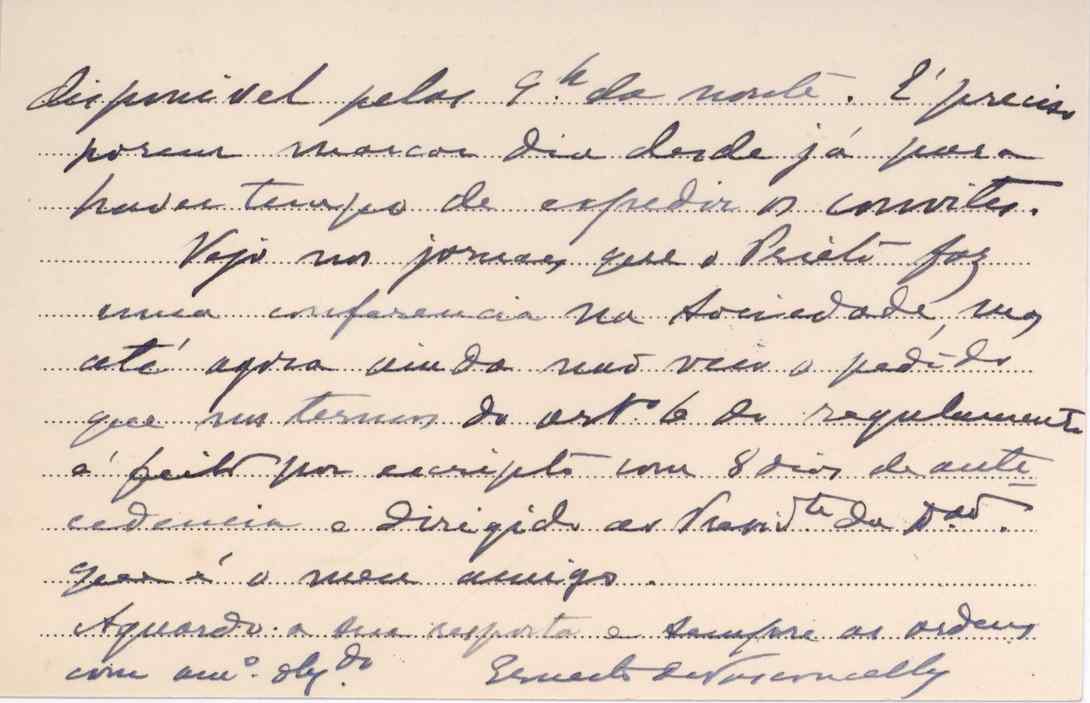 disponivel pelas 9.h da noute. É preciso
porem marcar dia desde já para
haver tempo de expedir os convites.
Vejo nos jornaes que o Prieto faz
uma conferencia na Sociedade, mas
até agora ainda não veio o pedido
que nos termos do artº 6 do regulamento
é feito por escripto com 8 dias de ante
cedencia e dirigido ao Presidte da
que é o meu amigo.
Aguardo a sua resposta e sempre as ordens
com amº. obgdo. Ernesto de Vasconcellos